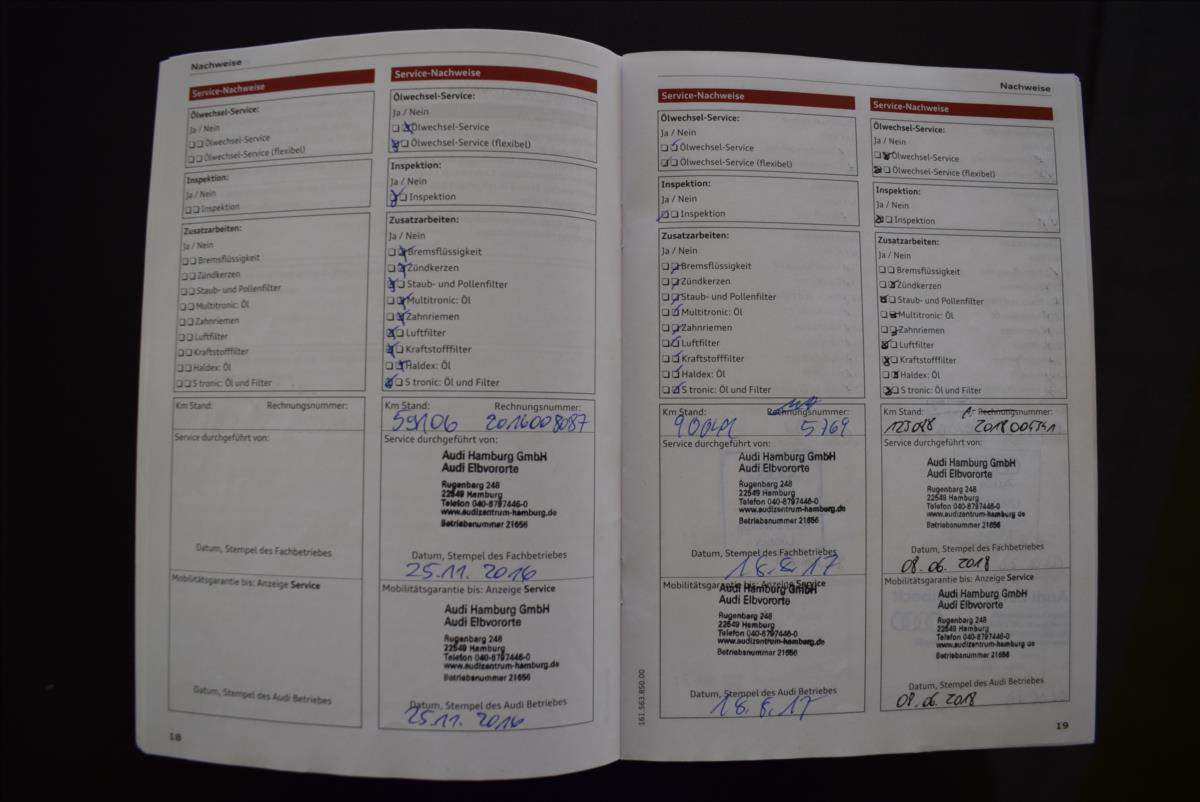 Nachweise
Service-Nachweise
Ölwechsel-Service:
Ja / Nein
Ölwechsel-Service
Ölwechsel-Service (flexibel)
Inspektion:
Ja / Nein
Inspektion
Zusatzarbeiten:
Ja / Nein
Bremsflüssigkeit
Zündkerzen
Staub- und Pollenfilter
Multitronic: Öl
Zahnriemen
Luftfilter
Kraftstofffilter
Haldex: Öl
S tronic: Öl und Filter
Km Stand: Rechnungsnummer:
Service durchgeführt von:
Datum, Stempel des Fachbetriebes
Mobilitätsgarantie bis: Anzeige Service
Datum, Stempel des Audi Betriebes
18
Service-Nachweise
Ölwechsel-Service:
Ja / Nein
Ölwechsel-Service
Ölwechsel-Service (flexibel)
Inspektion:
Ja / Nein
Inspektion
Zusatzarbeiten:
Ja / Nein
Bremsflüssigkeit
Zündkerzen
Staub- und Pollenfilter
Multitronic: Öl
Zahnriemen
Luftfilter
Kraftstofffilter
Haldex: Öl
S tronic: Öl und Filter
Km Stand: Rechnungsnummer:
59106 2016008087
Service durchgeführt von:
Audi Hamburg GmbH
Audi Elbvororte
Rugenbarg 248
22549 Hamburg
Telefon 040-8797446-0
www.audizentrum-hamburg.de
Betriebsnummer 21656
Datum, Stempel des Fachbetriebes
25.11. 2016
Mobilitätsgarantie bis: Anzeige Service
Audi Hamburg GmbH
Audi Elbvororte
Rugenbarg 248
22549 Hamburg
Telefon 040-8797446-0
www.audizentrum-hamburg.de
Betriebsnummer 21656
Datum, Stempel des Audi Betriebes
25.11. 2016
Service-Nachweise
Ölwechsel-Service:
Ja / Nein
Ölwechsel-Service
Ölwechsel-Service (flexibel)
Inspektion:
Ja / Nein
Inspektion
Zusatzarbeiten:
Ja / Nein
Bremsflüssigkeit
Zündkerzen
Staub- und Pollenfilter
Multitronic: Öl
Zahnriemen
Luftfilter
Kraftstofffilter
Haldex: Öl
S tronic: Öl und Filter
Km Stand: Rechnungsnummer:
5769
Service durchgeführt von:
Audi Hamburg GmbH
Audi Elbvororte
Rugenbarg 248
22549 Hamburg
Telefon 040-8797446-0
www.audizentrum-hamburg.de
Betriebsnummer 21656
Datum, Stempel des Fachbetriebes
18.8.17
Mobilitätsgarantie bis: Anzeige Service
Audi Hamburg GmbH
Audi Elbvororte
Rugenbarg 248
22549 Hamburg
Telefon 040-8797446-0
www.audizentrum-hamburg.de
Betriebsnummer 21656
Datum, Stempel des Audi Betriebes
18.8.17
161.563.850.00
Nachweise
Service-Nachweise
Ölwechsel-Service:
Ja / Nein
Ölwechsel-Service
Ölwechsel-Service (flexibel)
Inspektion:
Ja / Nein
Inspektion
Zusatzarbeiten:
Ja / Nein
Bremsflüssigkeit
Zündkerzen
Staub- und Pollenfilter
Multitronic: Öl
Zahnriemen
Luftfilter
Kraftstofffilter
Haldex: Öl
S tronic: Öl und Filter
Km Stand: Rechnungsnummer:
Service durchgeführt von:
Audi Hamburg GmbH
Audi Elbvororte
Rugenbarg 248
22549 Hamburg
Telefon 040-8797446-0
www.audizentrum-hamburg.de
Betriebsnummer 21656
Datum, Stempel des Fachbetriebes
08.06.2018
Mobilitätsgarantie bis: Anzeige Service
Audi Hamburg GmbH
Audi Elbvororte
Rugenbarg 248
22549 Hamburg
Telefon 040-8797446-0
www.audizentrum-hamburg.de
Betriebsnummer 21656
Datum, Stempel des Audi Betriebes
08.06.2018
19